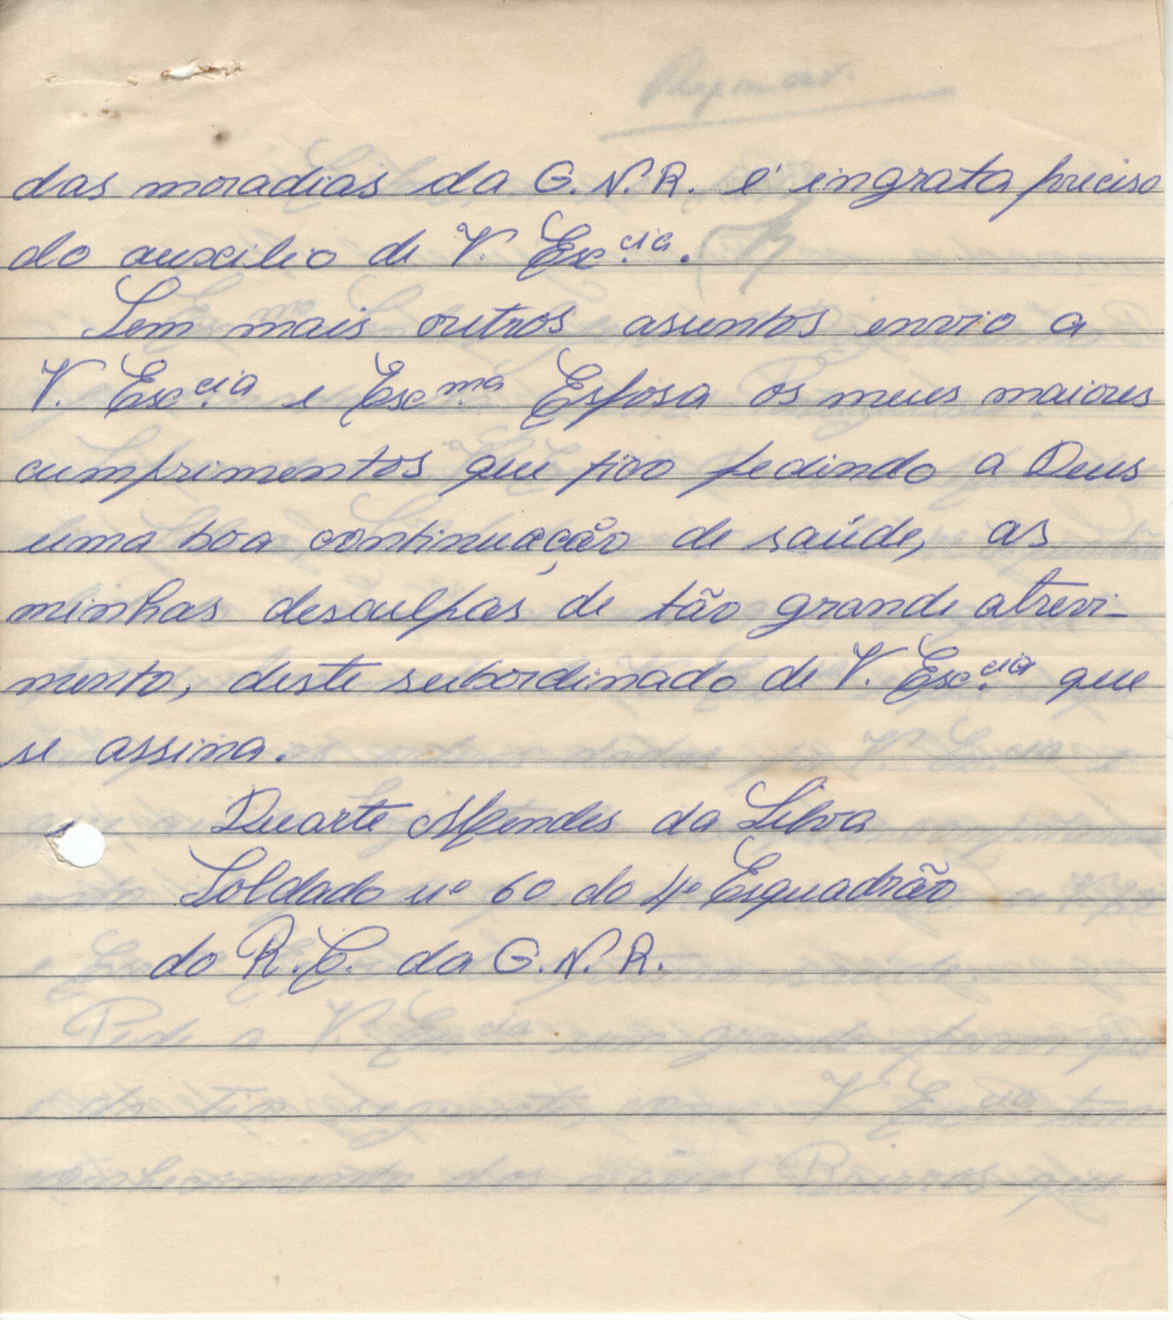 das moradias da G.N.R. é ingrata preciso
do auxilio de V. Exc.cia.
Sem mais outros asuntos envio a
V. Exc.cia e Exc.ma Esposa os meus maiores
cumprimentos que fico pedindo a Deus
uma boa continuação de saúde, as
minhas desculpas de tão grande atrevi-
mento, deste subordinado de V. Exc.cia que
se assina.
Duarte Mendes da Silva
Soldado nº 60 do 4º Esquadrão
do R.C. da G.N.R.